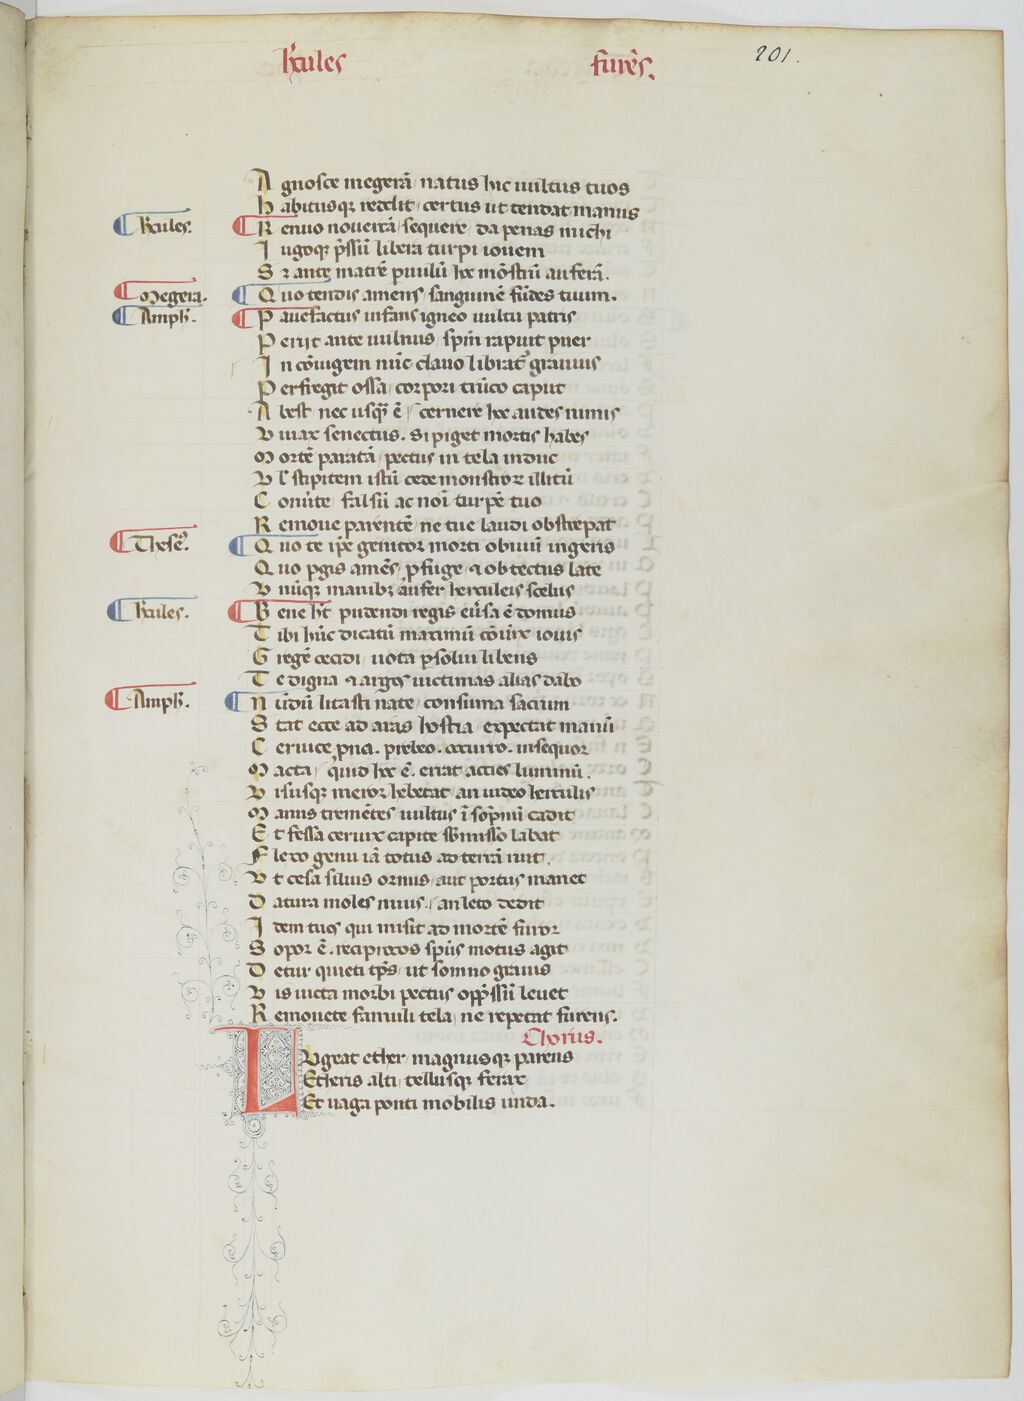 Hcules furẽs. 201.
Agnosce megerã natus hic uultus tuos
Habitusqꝫ reddit certus ut tendat manus
Hcules. Renuo nouercã sequere da penas michi
Iugoqꝫ p̃ssũ libera turpi iouem
Sꝫ ante matrẽ paruulũ hoc mõstrũ auferã.
Megera. Quo tendis amens sanguinẽ fũdes tuum.
Amph. Pauefactus infans igneo uultu patris
Perijt ante uulnus spm̃ rapuit puer
In cõiugem nũc clauo librat᷑ grauius
Perfregit ossa corpori trũco caput
Abest nec usqᷓ ẽ cernere hoc audes nimis
Viuax senectus. Si piget mortis habes
Mortẽ paratã pectus in tela indue
Vl stipitem istũ cede monstroꝝ illitũ
Conuerte falsũ ac noi turpẽ tuo
Remoue parentẽ ne tue laudi obstrepat
Thesẽ. Quo te ip̃e genitor morti obuiũ ingeris
Quo ꝑgis amẽs ꝓfuge ⁊ obtectus late
Vnũqꝫ manibꝫ aufer herculeis scelus
Hcules. Bene hʒ pudendi regis eũsa ẽ domus
Tibi hũc dicatũ maximi cõiũx iouis
Gregẽ cecidi uota ꝑsolui libens
Te digna ⁊ argos uictimas alias dabo
Amph. Nũdũ litasti nate consuma sacrum
Stat ecce ad aras hostia expectat manũ
Ceruice pna. prebeo. occurro. insequor
Macta quid hoc ẽ. errat acies luminũ.
Visusqꝫ meror hebetat an uideo herculis
Manus tremẽtes uultus ĩ sopnũ cadit
Et fessa ceruix capite sb̃misso labat
Flexo genu iã totus ad terrã ruit.
Vt cesa siluis ornus aut portus manet
Datura moles niuis. an leto dedit
Idem tuos qui misit ad mortẽ furor
Sopor ẽ. reciprocos spũs motus agit
Detur quieti tp̃s ut somno grauis
Vis uicta morbi pectus opp̃ssũ leuet
Remouete famuli tela ne repetat furens.
Chorus.
Lugeat ether magnusqꝫ parens
Etheris alti tellusqꝫ ferax
Et uaga ponti mobilis unda.